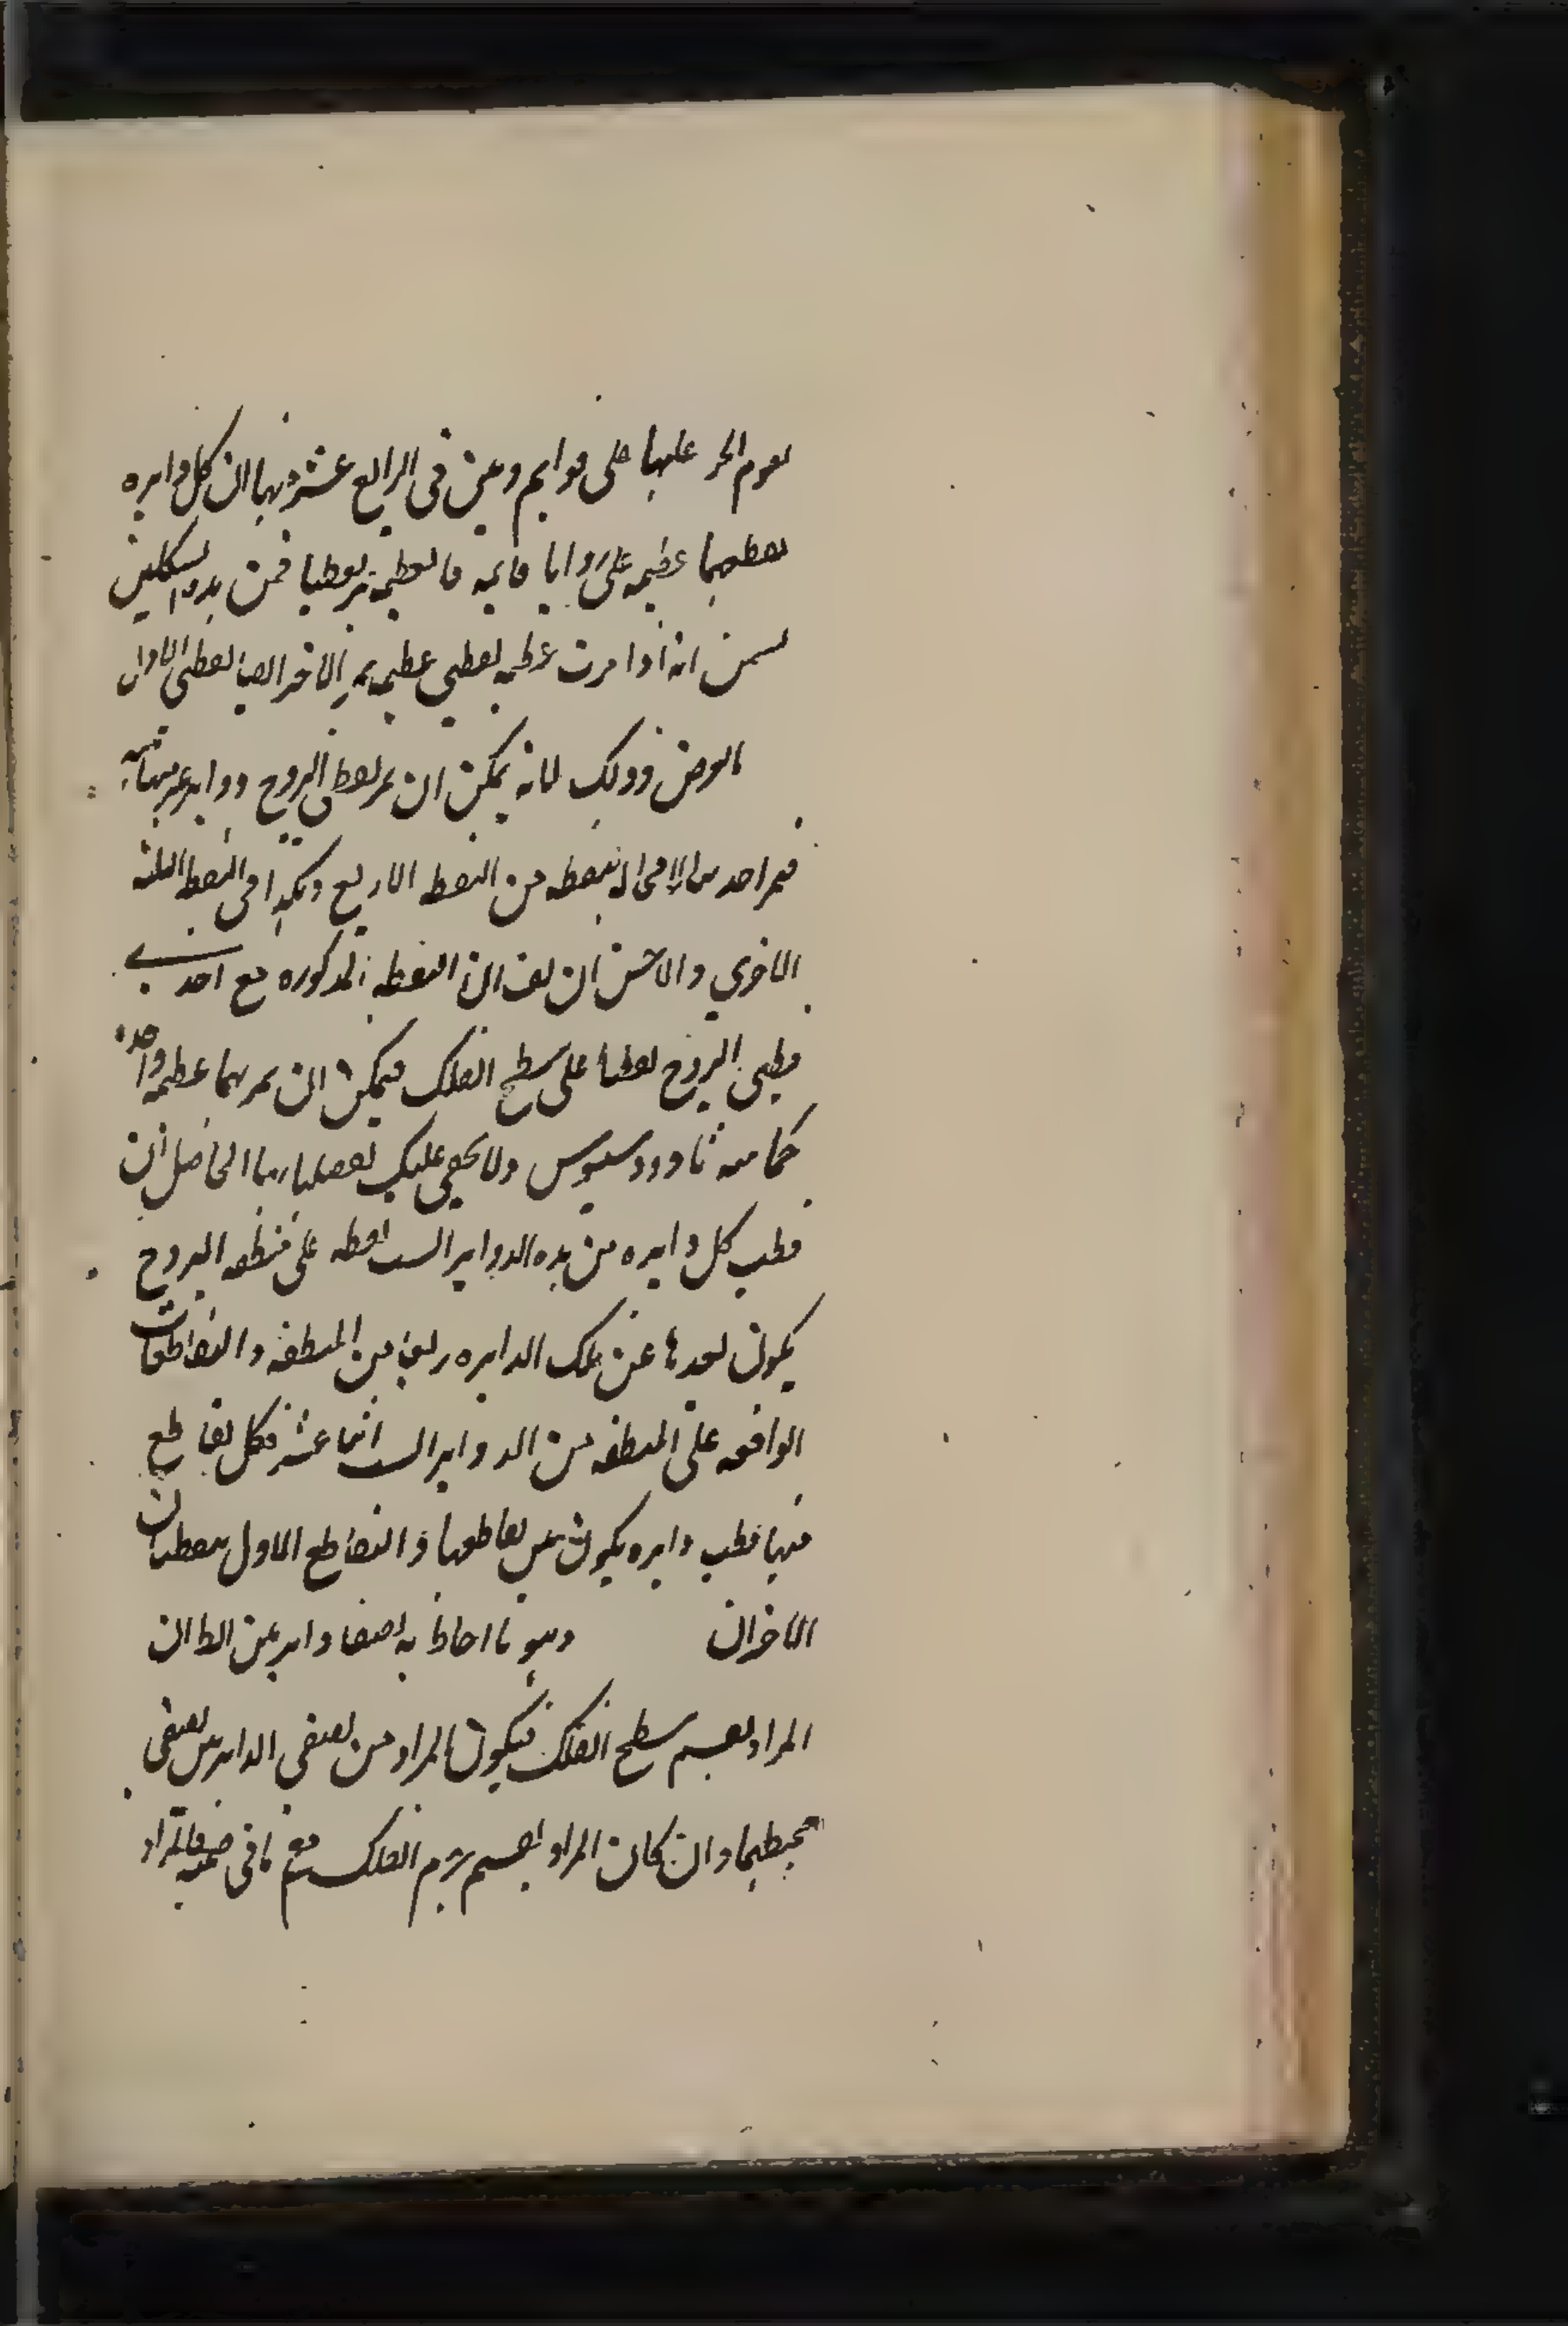 يقوم الحر عليها على قوايم وبين في الرابع عشر منها ان كل دايره
يقطعها عظيمه على زوايا قايمه فالعظيمه تمر بقطبيها فمن هذه الشكلين
يتبين انه اذا مرت عظيمه بقطبي عظيمه يمر الاخر ايضا بقطبي الاول
بالعرض وذلك لانه يمكن ان يمر بقطبي البروج دواير غير متناهيه
فيمر احد من بنقطه من النقط الاربع وهكذا في النقط الثلثه
الاخري والاحسن ان يقال ان النقطه المذكوره مع احد
قطبي البروج نقطتا على سطح الفلك فيمكن ان يمر بهما عظيمه واحده
كما بينه ثاودوسيوس ولا يخفى عليك تفصيلها الحاصل ان
قطب كل دايره من هذه الدواير الست نقطه على منطقه البروج
يكون بعدها عن تلك الدايره ربعا من المنطقه والتقاطعات
الواقعه على المنطقه من الدواير الست اثنا عشر فكل تقاطع
منها قطب دايره يكون بين تقاطعها والتقاطع الاول نقطتان
الاخران وهو ما احاط به نصفا دايرتين الظ ان
المراد بقسم سطح الفلك فيكون المراد من نصفي الدايرتين نصفي
محيطيهما وان كان المراد بقسم جرم الفلك مع ما في ضمنه فالمراد